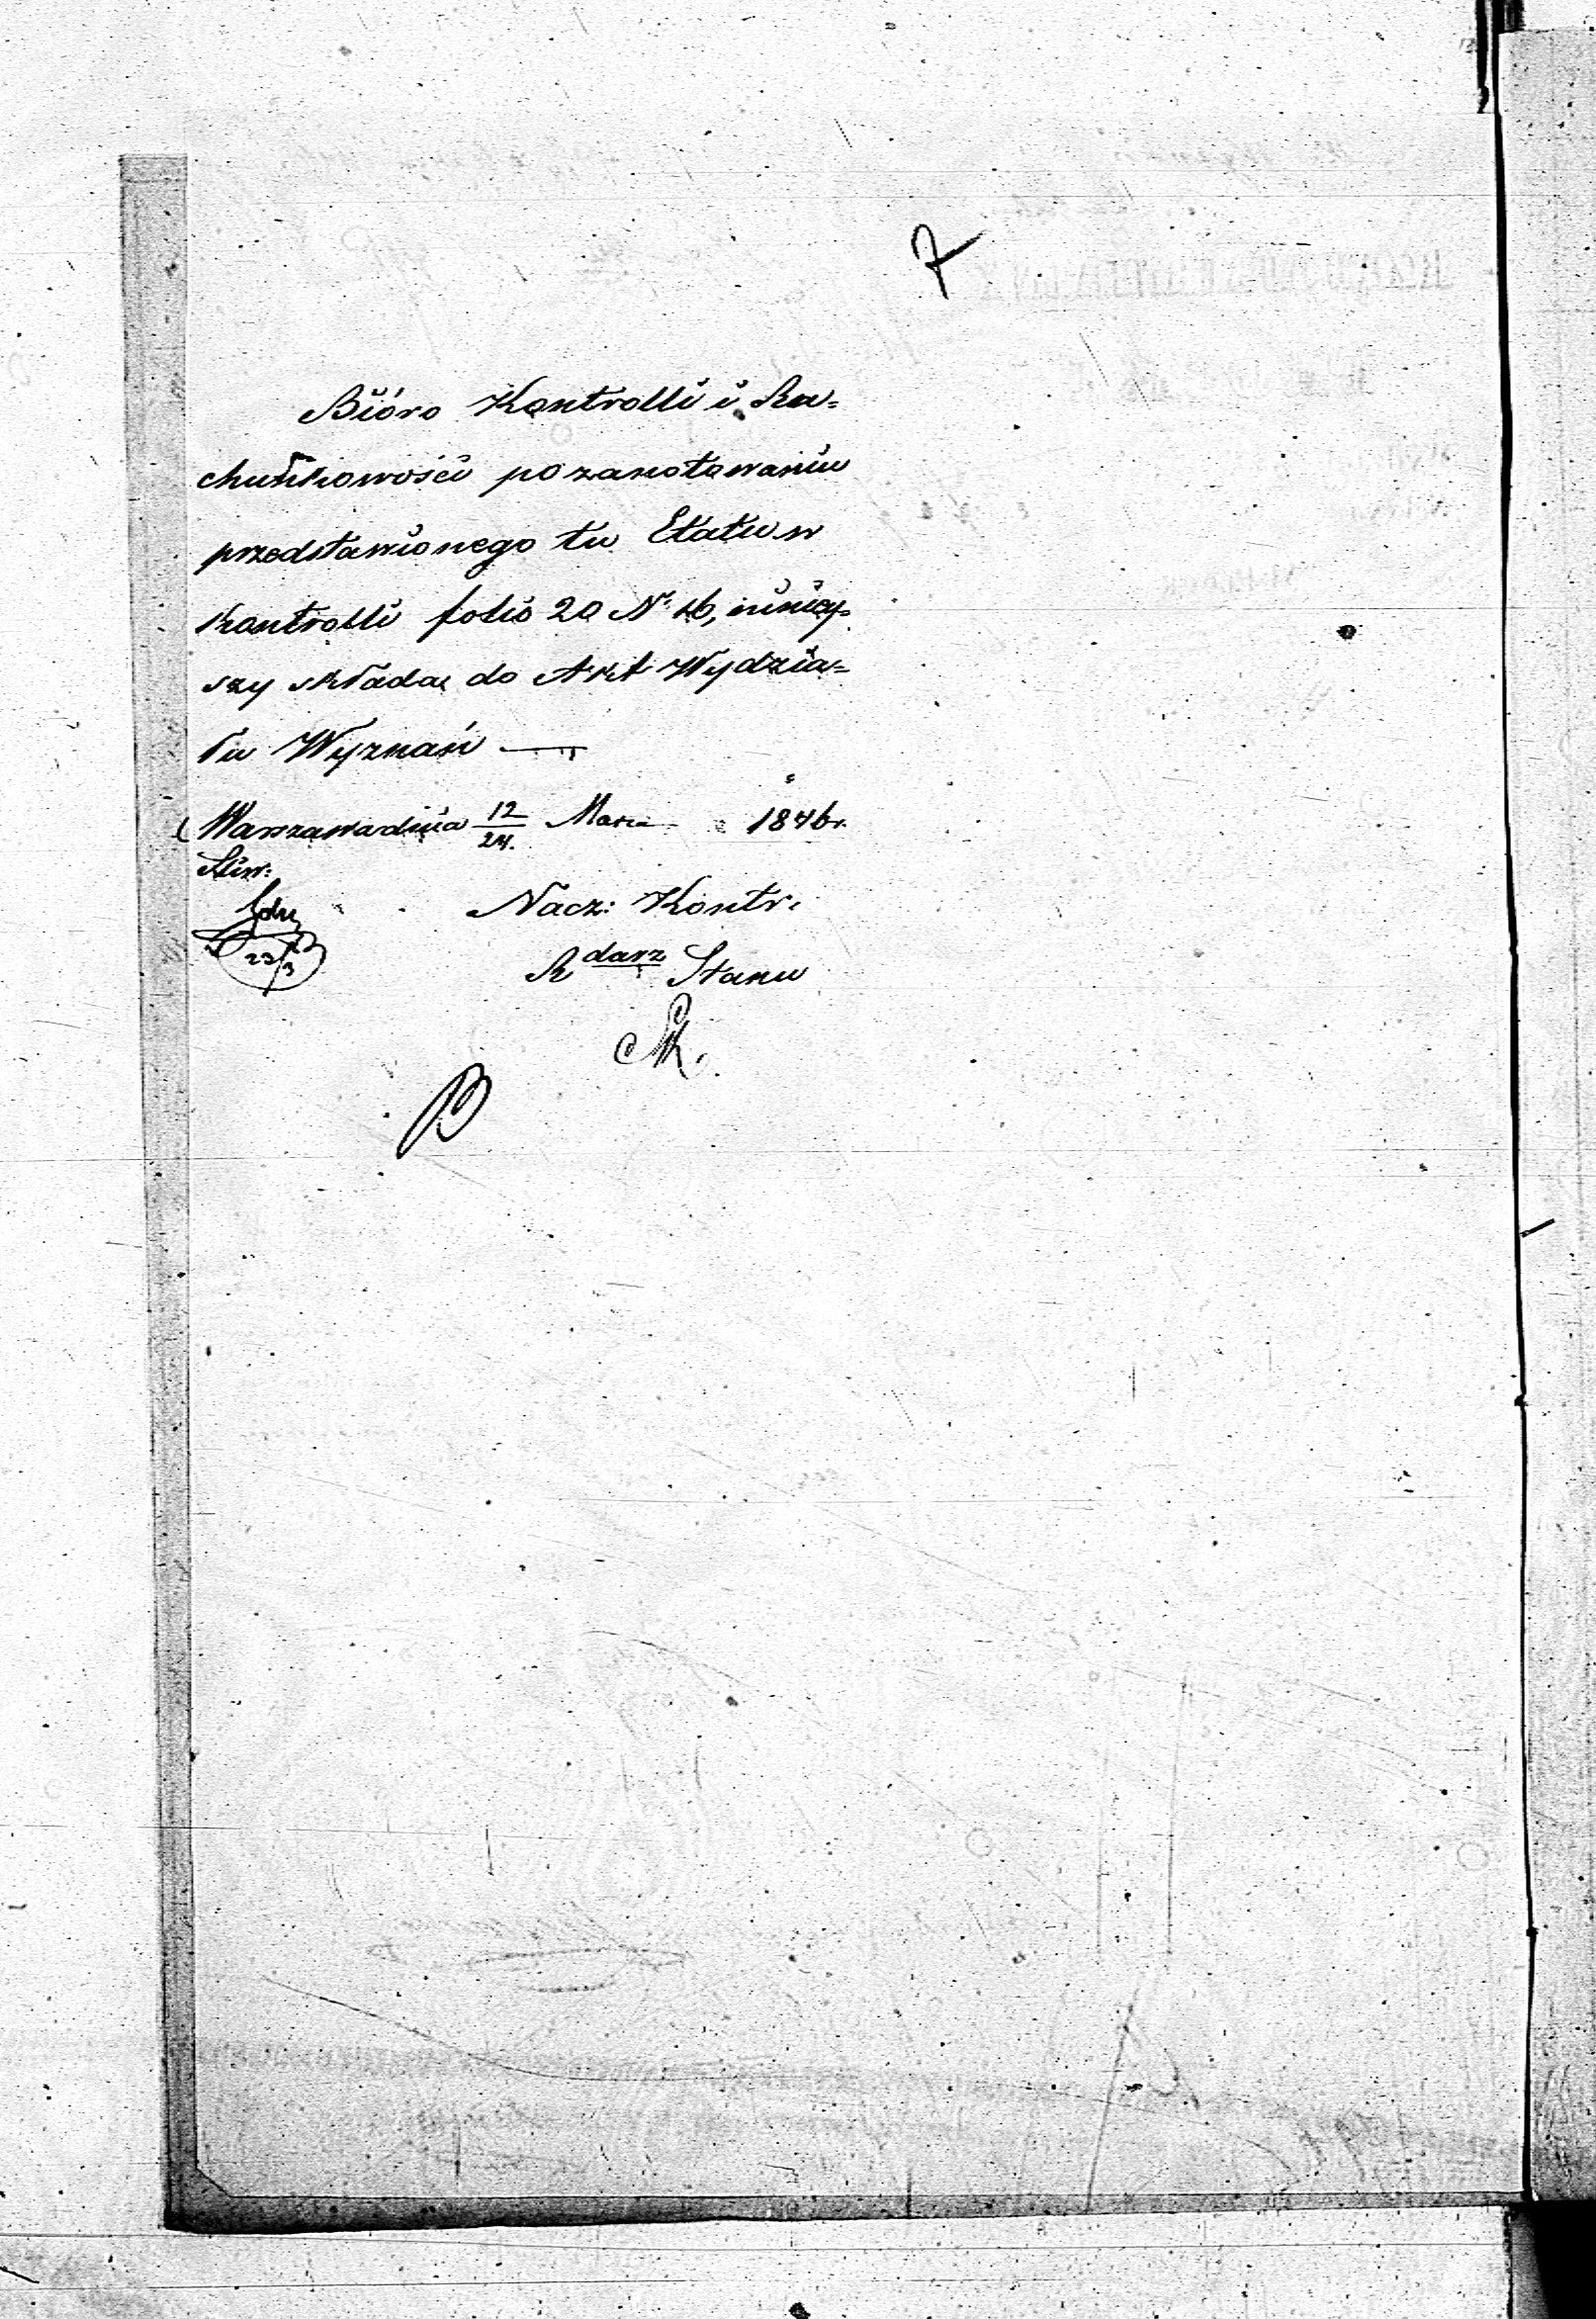 Bióro Kontrolli i Ra=
chunkowości po zanotowaniu
przedstawionego tu Etatu w
Kontrolli folio 20 N. 46, niniey=
szy składa do Akt Wydzia=
łu Wyznań —
Warszawa dnia 12/24. Marca 1846 r.
Nacz: Kontr.
R darz Stanu
23/3